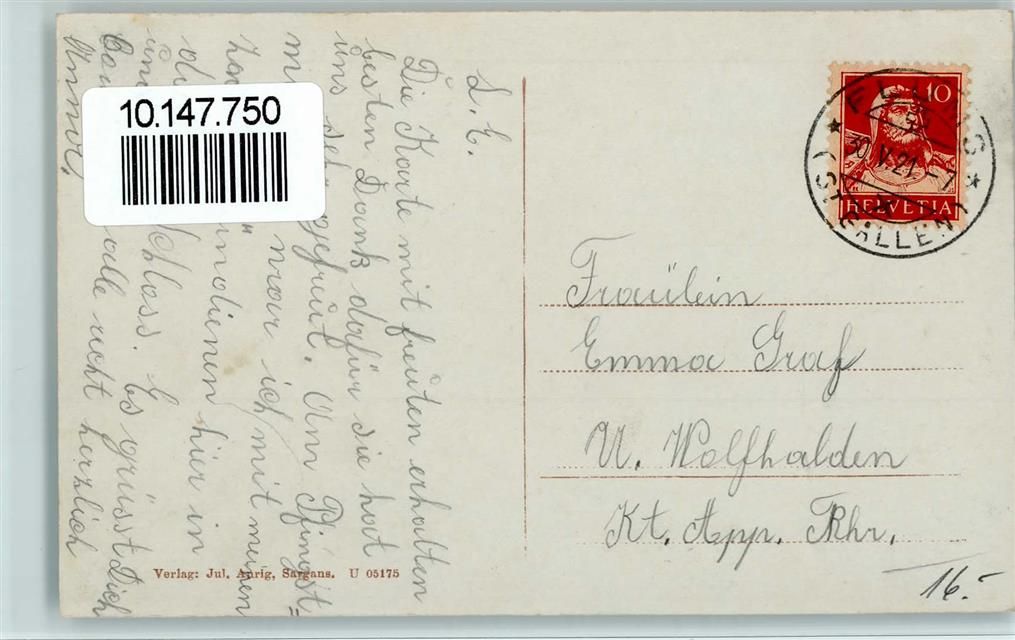 10.147.750
L. E.
Die Karte mit freüten erhalten
besten Dank dafür sie hat
üns gefreüt. Am Pfingst=
war ich mit meinen
hier in
Es grüsst Dich
alle recht herzlich
Verlag: Jul. Aurig, Sargans. U 05175
10
HELVETIA
FLUMS
30.V.21.-7
(ST.GALLEN)
Fraülein
Emma Graf
U. Wolfhalden
Kt. App. Rhr.
16.-